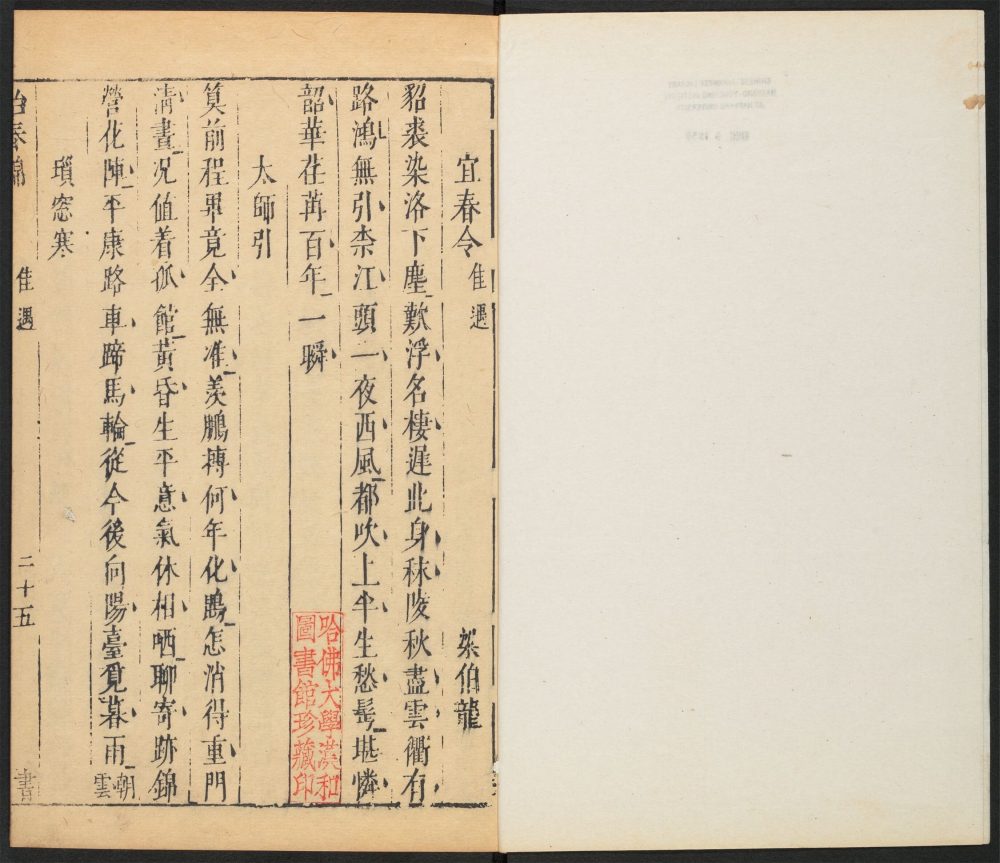 宜春令 佳遇 梁伯龍
貂裘染洛下塵歎浮名棲遲此身秣陵秋盡雲衢有
路鴻無引柰江頭一夜西風都吹上半生愁髩堪憐
韶華荏苒百年一瞬
太師引
算前程畢竟全無准羨鵬摶何年化鵾怎消得重門
清晝况值着孤館黃昏生平意氣休相哂聊寄跡錦
營化陣平康路車蹄馬輪從今後向陽臺覓暮雨朝雲
瑣窓寒
佳遇 二十五
哈佛大學漢和
圖書館珍藏印